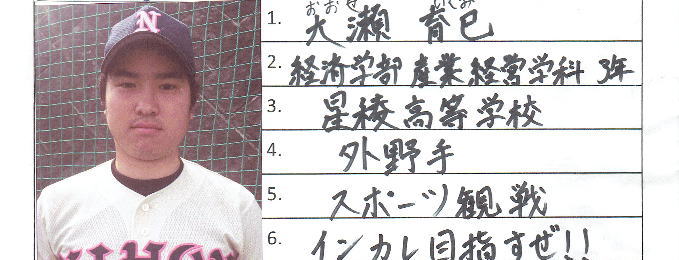 N
NIHON
おおせ いくみ
1. 大瀬 育巳
2. 経済学部 産業経営学科 3年
3. 星稜高等学校
4. 外野手
5. スポーツ観戦
6. インカレ目指すぜ!!